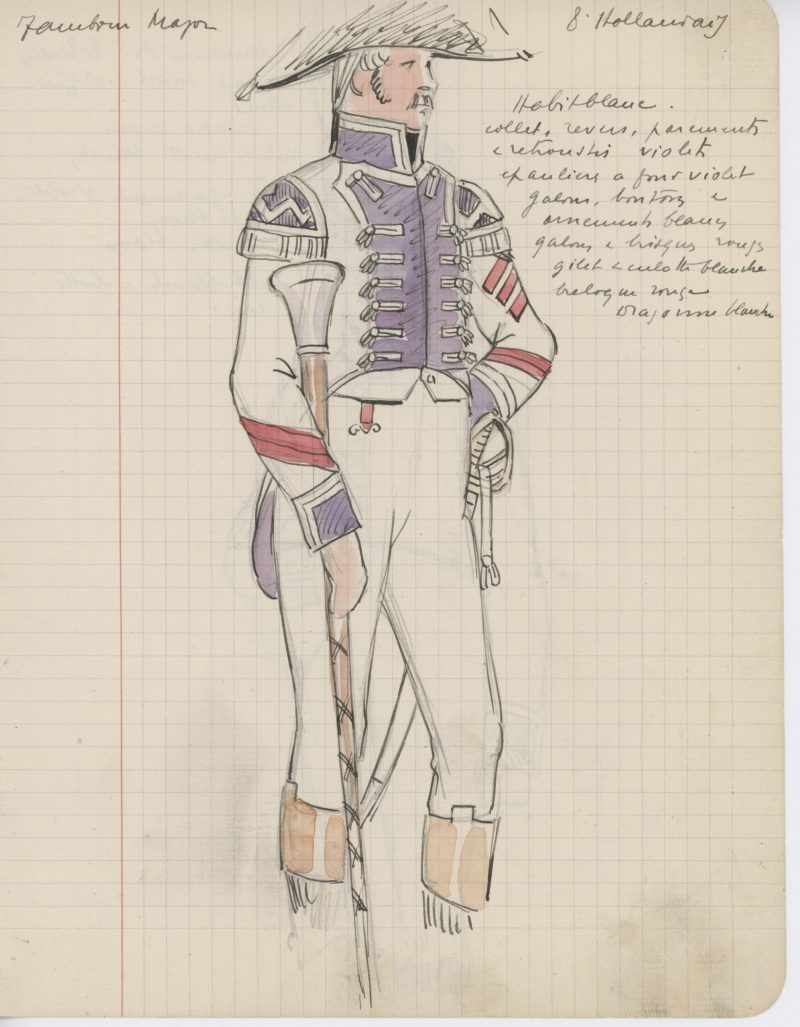 Tambour Major
8e Hollandais
Habit blanc.
collet, revers, parements
& retroussis violets
épauliers a fond violet
galons, boutons &
ornements blancs
galons & brisques rouges
gilet & culotte blanche
breloque rouge
Dragonne blanche